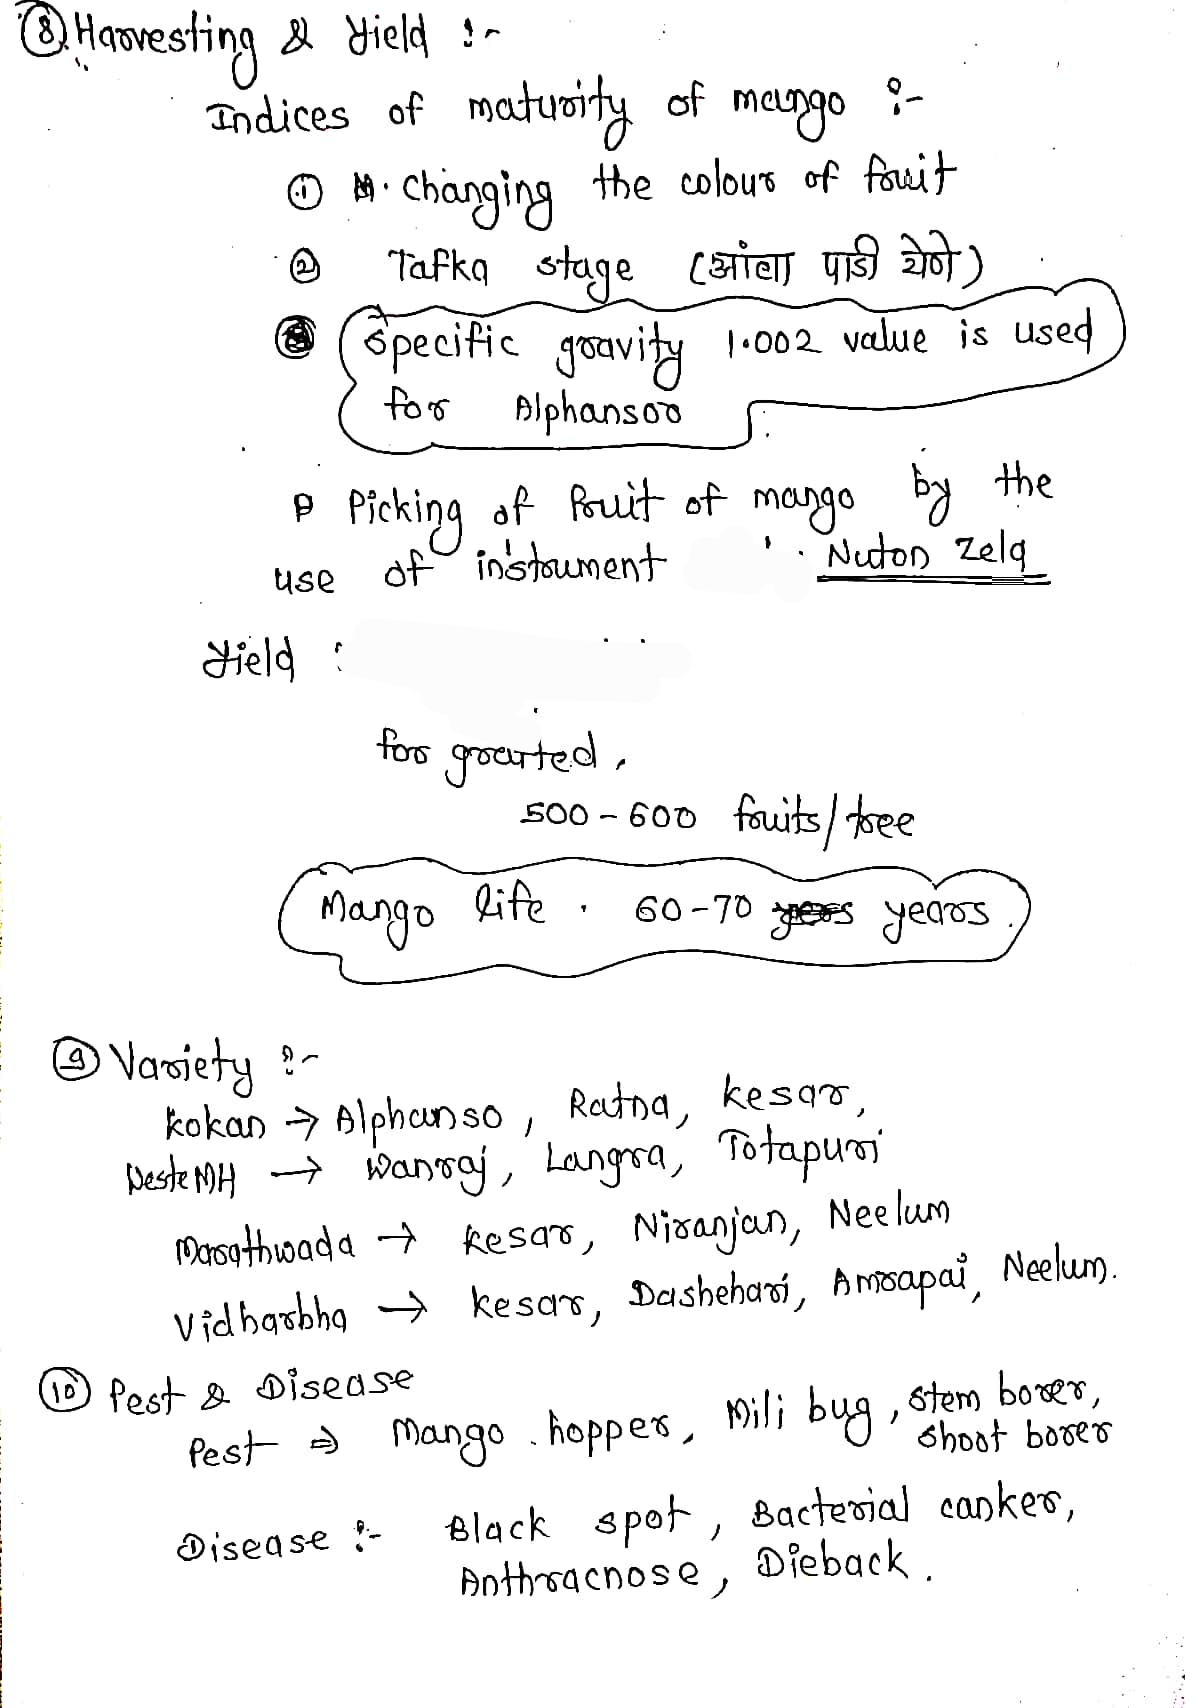 ⑧ Harvesting & Yield :-
Indices of maturity of mango :-
① Changing the colour of fruit
② Tafka stage (आंबा पाडी येणे)
③ Specific gravity 1.002 value is used
for Alphansoo
Picking of fruit of mango by the
use of instrument Nuton Zela
Yield :
for grarted,
500-600 fruits/tree
Mango life . 60-70 years
⑨ Variety :-
Kokan → Alphanso, Ratna, kesar,
Weste MH → Wanraj, Langra, Totapuri
Marathwada → kesar, Niranjan, Neelum
Vidharbha → kesar, Dashehari, Amrapai, Neelum.
⑩ Pest & Disease
Pest ⇒ Mango hopper, Mili bug, Stem borer,
Shoot borer
Disease :- Black spot, Bacterial canker,
Anthracnose, Dieback.